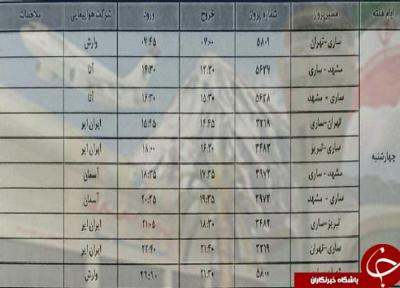 ایام هفته مسیرپرواز شماره پرواز خروج ورود شرکت هواپیمایی ملاحظات
ساری-تهران ۵۸۰۹ ۰۷:۰۰ ۰۷:۴۵ وارش
مشهد - ساری ۵۶۲۷ ۱۳:۳۰ ۱۴:۳۰ آتا
ساری - مشهد ۵۶۲۸ ۱۵:۳۰ ۱۶:۳۰ آتا
تهران-ساری ۳۲۱۸ ۱۴:۴۵ ۱۵:۴۵ ایران ایر
ساری-تبریز ۳۴۸۳ ۱۶:۲۰ ۱۸:۰۰ ایران ایر
چهارشنبه
مشهد - ساری ۳۹۷۲ ۱۷:۳۵ ۱۸:۳۵ آسمان
ساری - مشهد ۳۹۷۳ ۱۹:۳۵ ۲۰:۳۵ آسمان
تبریز-ساری ۳۴۸۲ ۱۸:۳۰ ۲۱:۰۵ ایران ایر
ساری-تهران ۳۲۱۹ ۲۱:۴۰ ۲۲:۴۰ ایران ایر
ساری ۵۸۰۸ ۲۱:۳۰ ۲۲:۱۰ وارش
باشگاه خبرنگاران